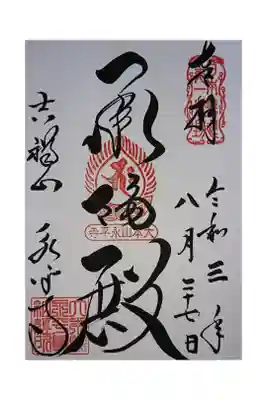 吉祥
令和三年
八月二十七日
承陽殿
大本山永平寺
吉祥山
永平寺